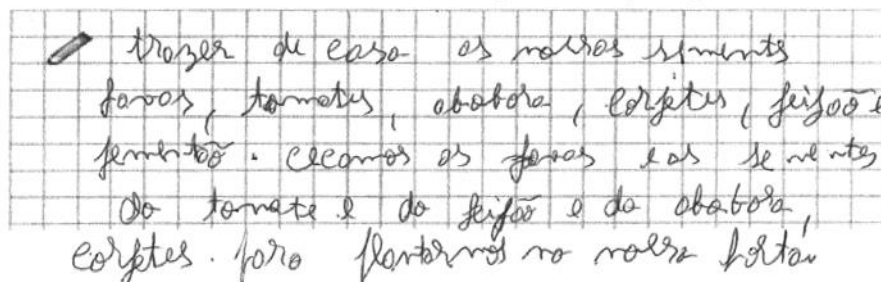 trazer de casa as nossas siments
favas, tomates, abobora, corjetes, feijoõ e
pimentoõ. cecamos as favas e as se mentes
Do tomate e do feijoõ e da abobora,
corjetes. para plantarmos na nossa horta.